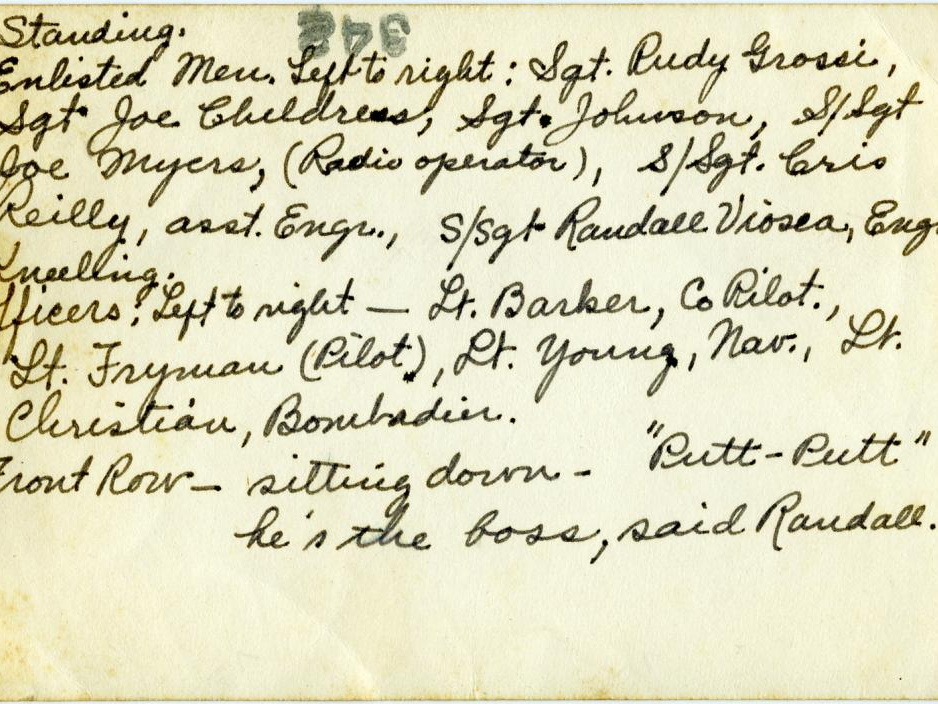 Standing.
342
Enlisted Men. Left to right : Sgt. Rudy Grossi,
Sgt Joe Childress, Sgt. Johnson, S/Sgt
Joe Myers, (Radio operator), S/Sgt. Cris
Reilly, asst. Engr., S/Sgt Randall Viosca, Engr
Kneeling.
fficers: Left to right — Lt. Barker, Co Pilot.,
Lt. Fryman (Pilot), Lt. Young, Nav., Lt.
Christian, Bombadier.
Front Row — sitting down - "Putt-Putt"
he's the boss, said Randall.